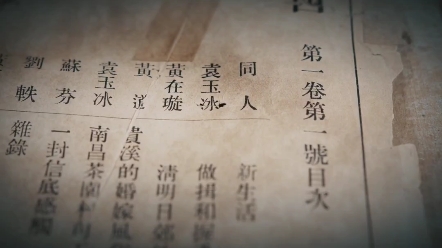 第一卷第一號目次
同人 新生活
袁玉冰 做揖和握
黃在璇 清明日郊
黃 貴溪的婚嫁風
袁玉冰 南昌茶園村
蘇芬 一封信底感觸
劉軼 雜錄